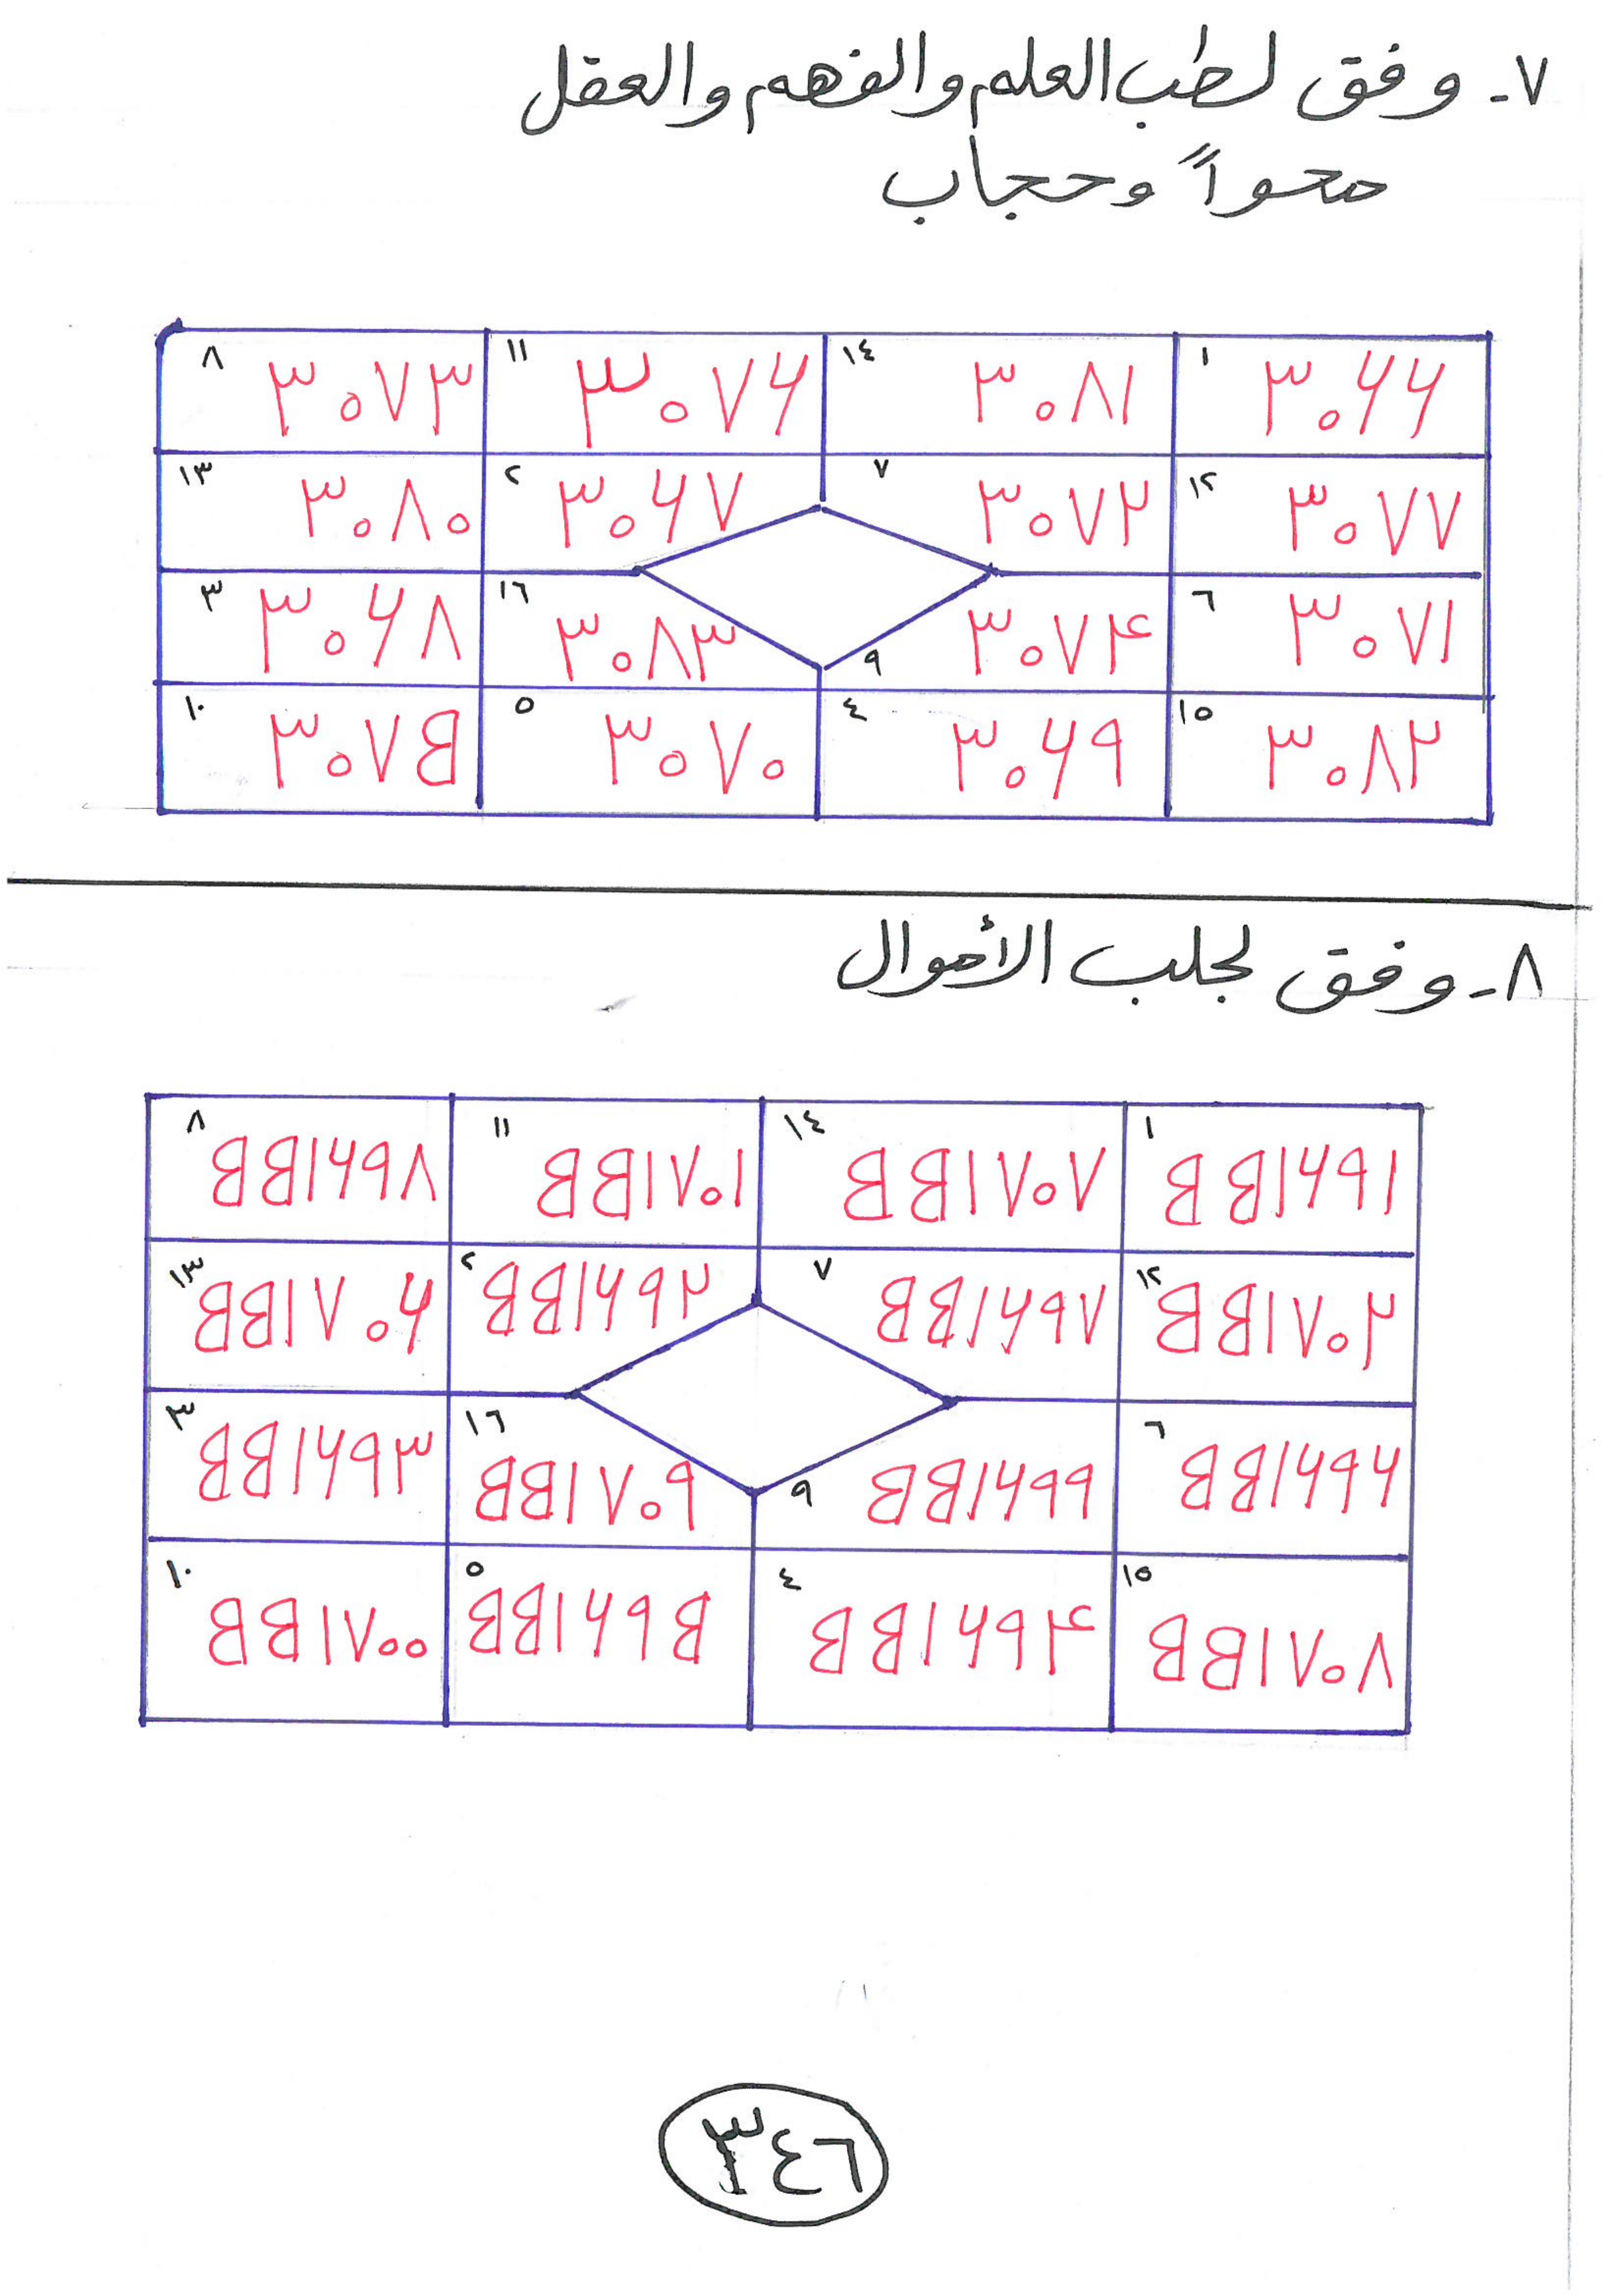 ٧- وفق لطب العلم والفهم والعقل
محواً وحجاب
١ ٣٠٦٦ ١٤ ٣٠٨١ ١١ ٣٠٧٦ ٨ ٣٠٧٣
١٢ ٣٠٧٧ ٧ ٣٠٧٢ ٢ ٣٠٦٧ ١٣ ٣٠٨٠
٦ ٣٠٧١ ٩ ٣٠٧٤ ١٦ ٣٠٨٣ ٣ ٣٠٦٨
١٥ ٣٠٨٢ ٤ ٣٠٦٩ ٥ ٣٠٧٠ ١٠ ٣٠٧٥
٨- وفق لجلب الأموال
١ ٥٥١٦٩١ ١٤ ٥٥١٧٠٧ ١١ ٥٥١٧٠١ ٨ ٥٥١٦٩٨
١٢ ٥٥١٧٠٢ ٧ ٥٥١٦٩٧ ٢ ٥٥١٦٩٢ ١٣ ٥٥١٧٠٦
٦ ٥٥١٦٩٦ ٩ ٥٥١٦٩٩ ١٦ ٥٥١٧٠٩ ٣ ٥٥١٦٩٣
١٥ ٥٥١٧٠٨ ٤ ٥٥١٦٩٤ ٥ ٥٥١٦٩٥ ١٠ ٥٥١٧٠٠
٣٤٦